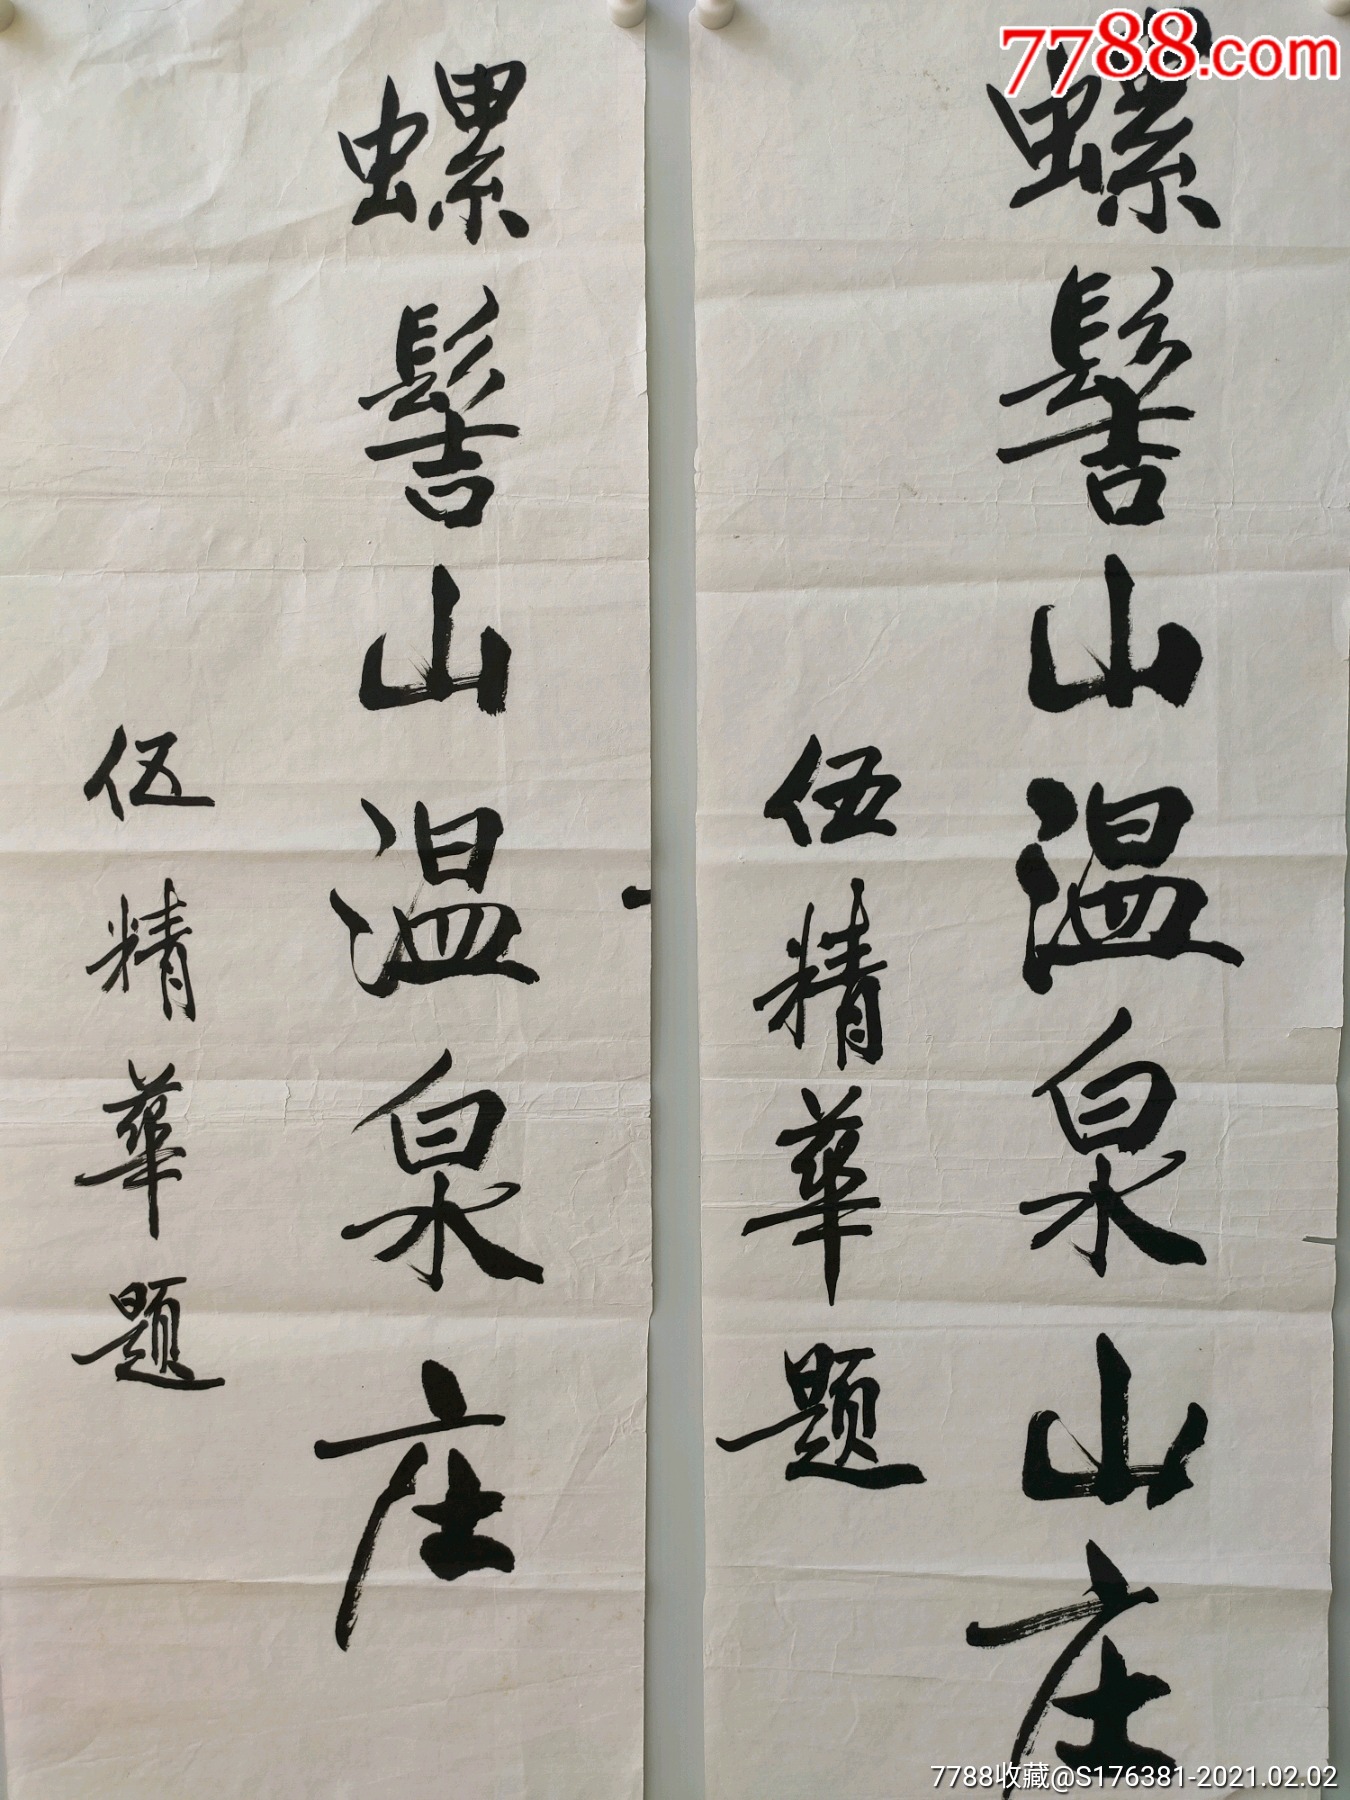 7788.com
螺髻山温泉山庄
伍精華题
螺髻山温泉庄
伍精華题
7788收藏@S176381-2021.02.02